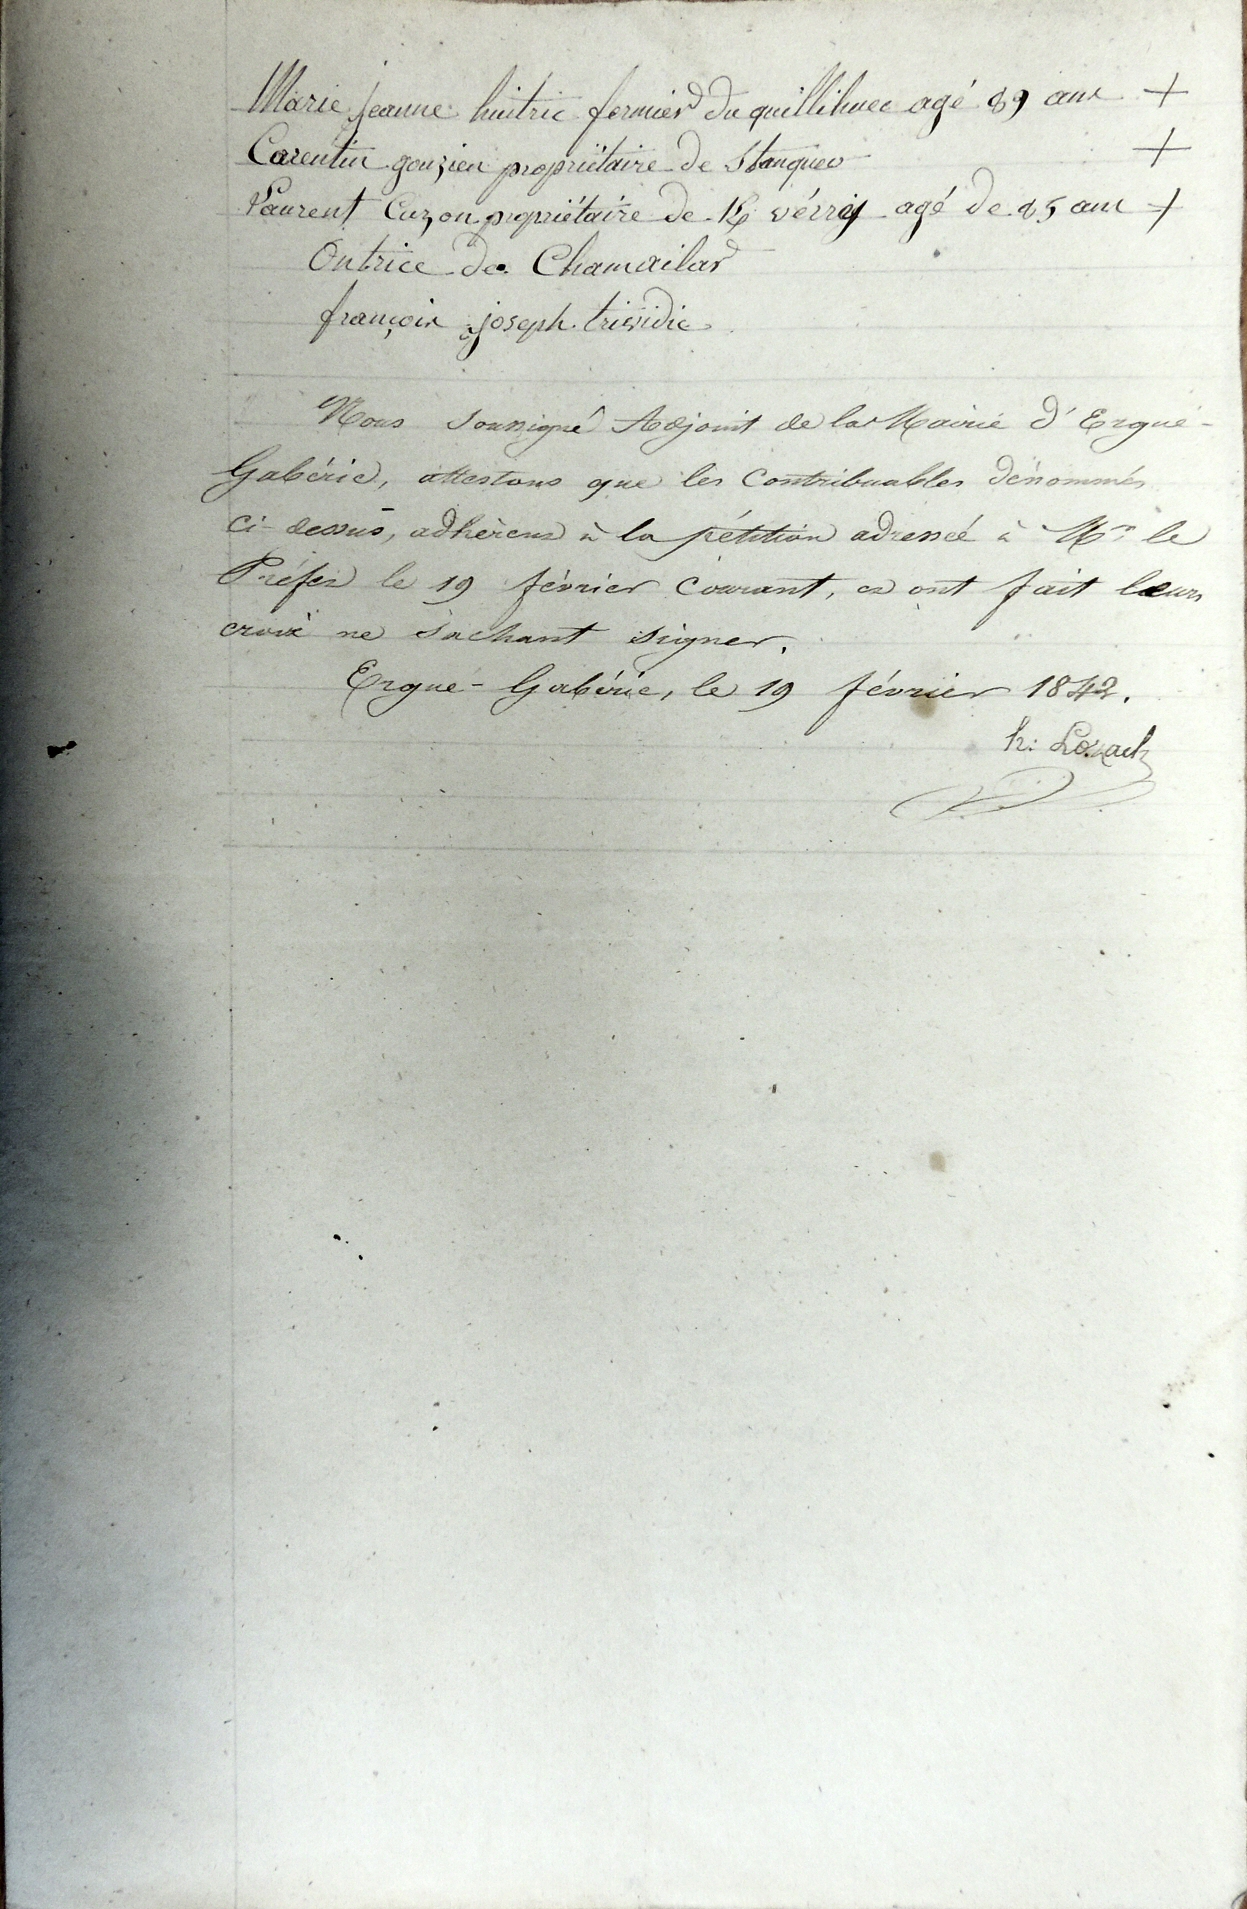 Marie jeanne huitric fermier du quillihuec agé 89 ans +
Corentin gouzien propriétaire de Stanquev +
Laurent Cuzon propriétaire de K vérrij agé de 85 ans +
Ontrice de Chamailar
françois joseph trividic
Nous soussigné Adjoint de la Mairie d'Ergué-
Gabéric, attestons que les Contribuables dénommés
ci-dessus, adhèrent à la pétition adressée à Mr le
Préfet le 19 février Courant, et ont fait leurs
croix ne sachant signer.
Ergué-Gabéric, le 19 février 1842.
h: Lozach